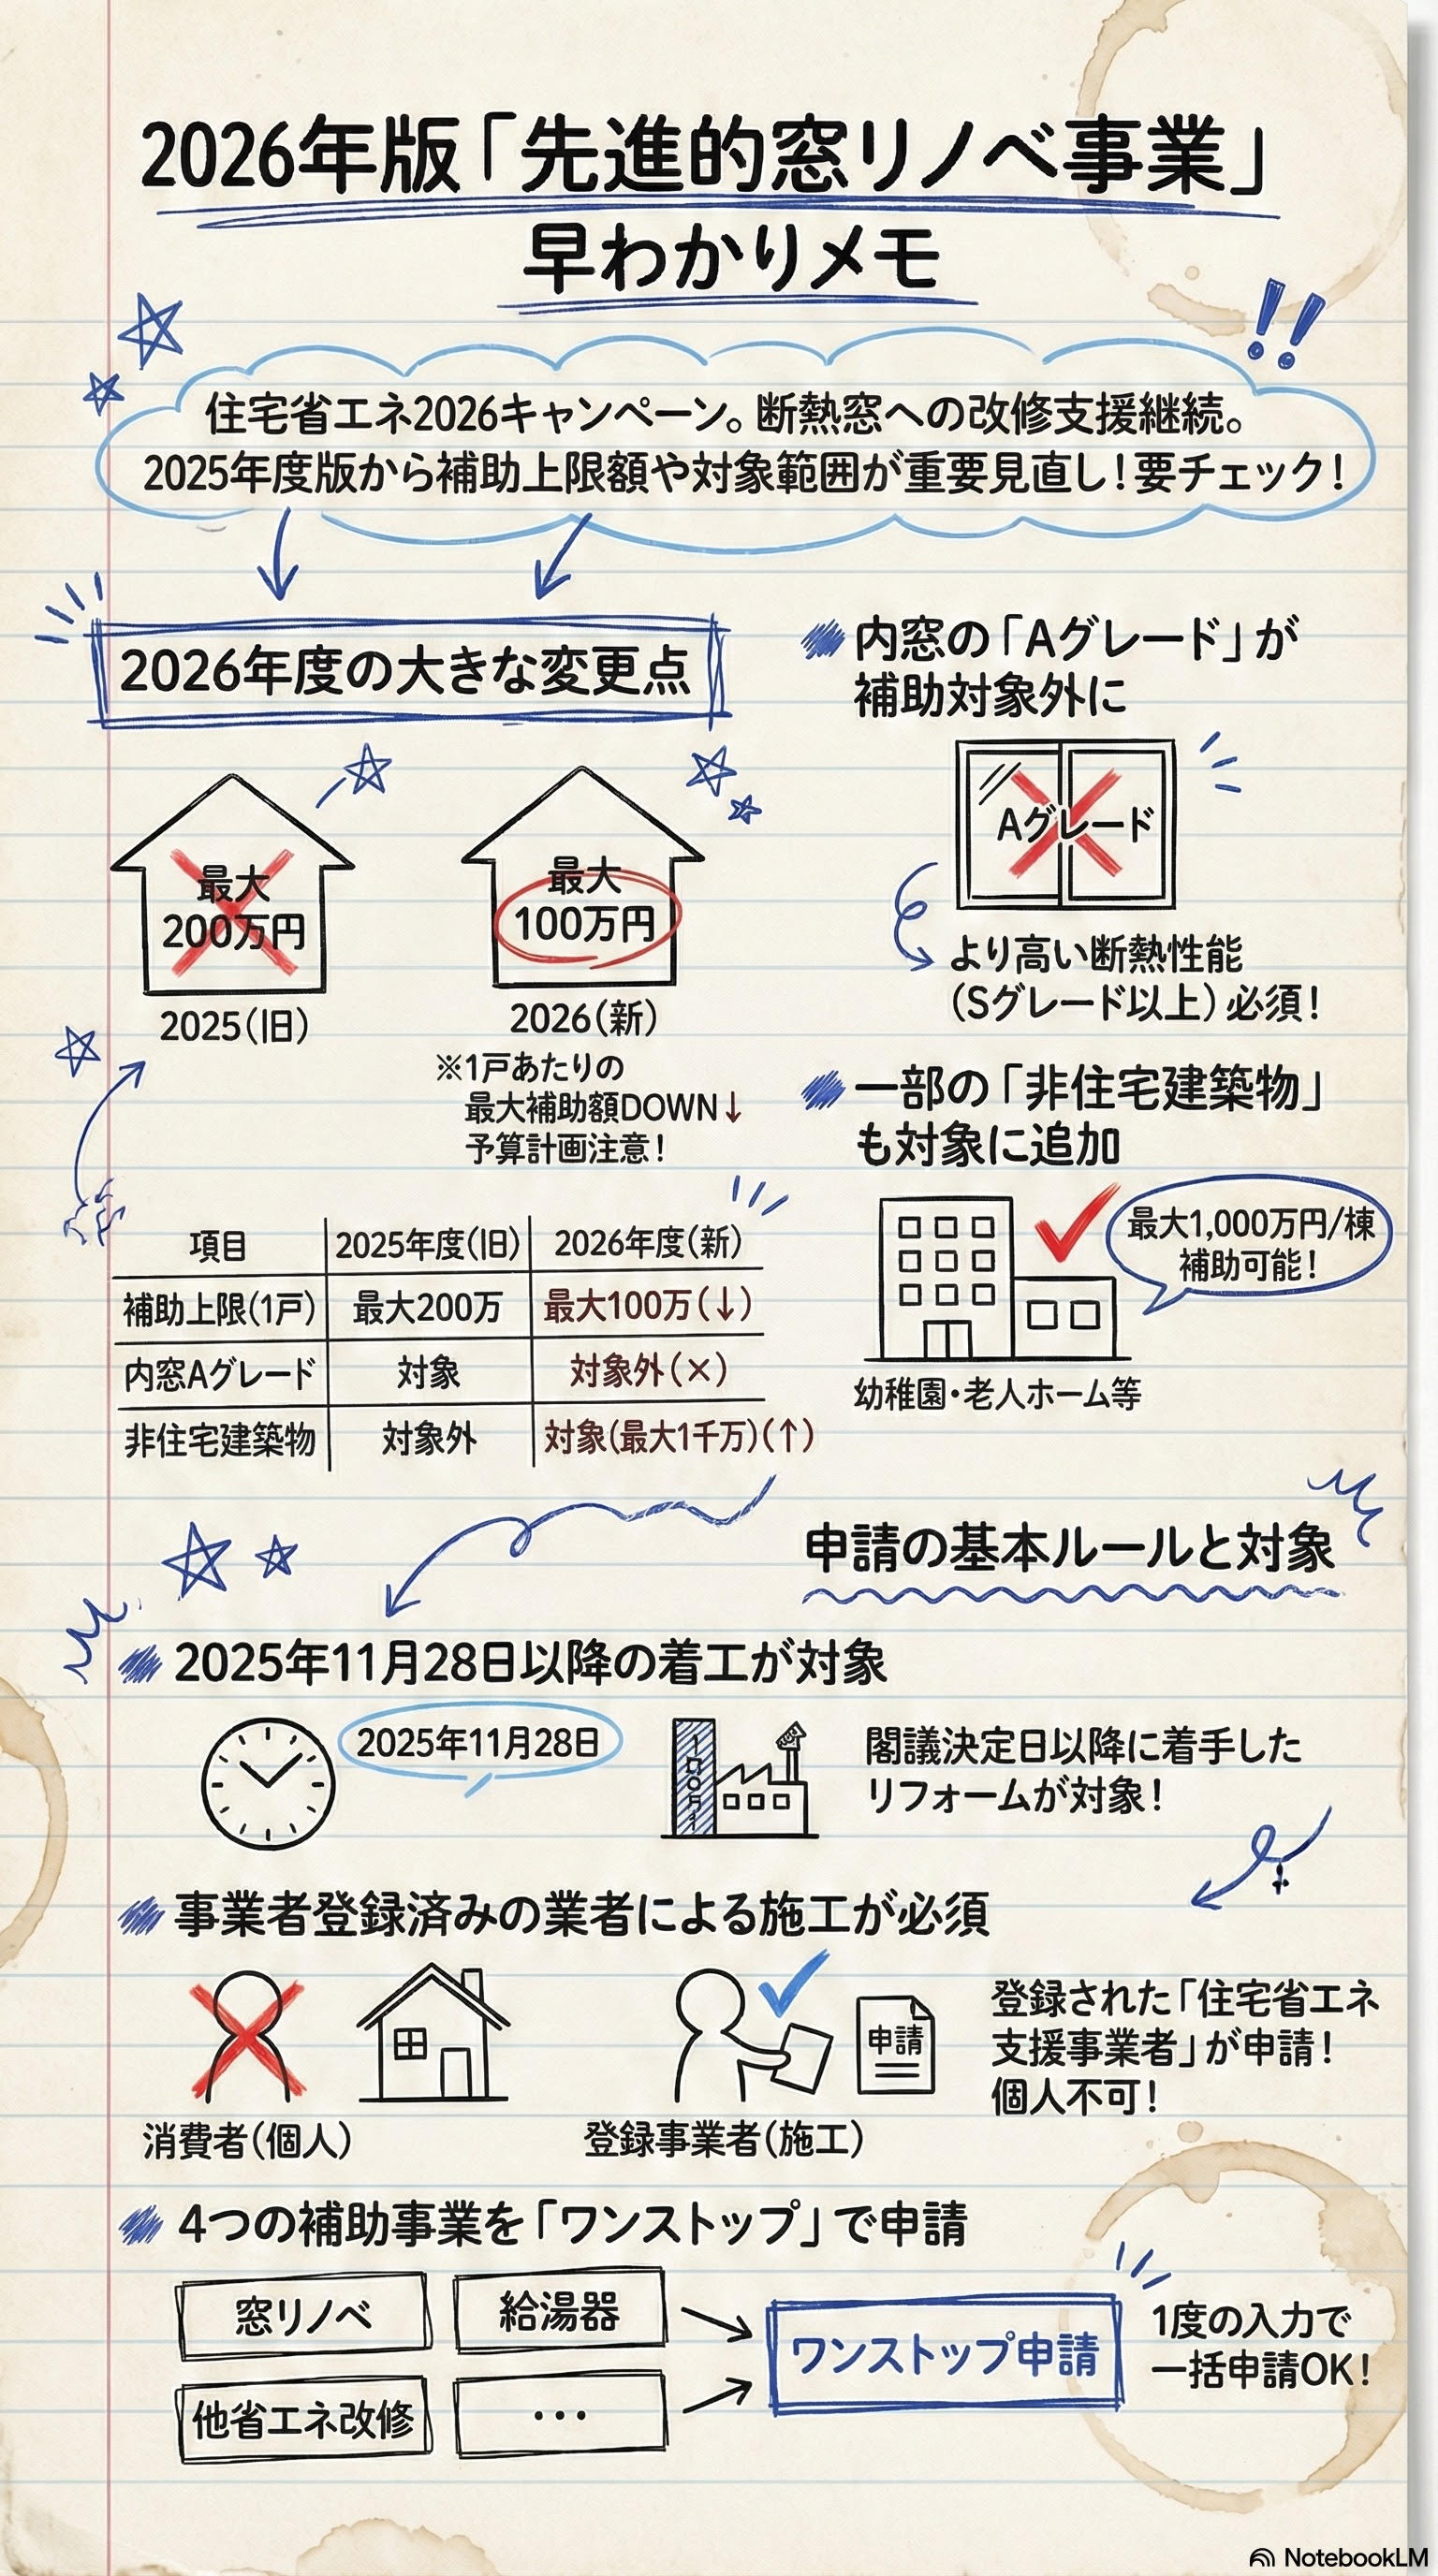 2026年版「先進的窓リノベ事業」
早わかりメモ
住宅省エネ2026キャンペーン。断熱窓への改修支援継続。
2025年度版から補助上限額や対象範囲が重要見直し！要チェック！
2026年度の大きな変更点
最大
200万円
2025（旧）
最大
100万円
2026（新）
※1戸あたりの
最大補助額DOWN↓
予算計画注意！
内窓の「Aグレード」が
補助対象外に
Aグレード
より高い断熱性能
（Sグレード以上）必須！
一部の「非住宅建築物」
も対象に追加
最大1,000万円/棟
補助可能！
幼稚園・老人ホーム等
項目 2025年度（旧） 2026年度（新）
補助上限（1戸） 最大200万 最大100万（↓）
内窓Aグレード 対象 対象外（×）
非住宅建築物 対象外 対象（最大1千万）（↑）
申請の基本ルールと対象
2025年11月28日以降の着工が対象
2025年11月28日
閣議決定日以降に着手した
リフォームが対象！
事業者登録済みの業者による施工が必須
消費者（個人）
申請
登録事業者（施工）
登録された「住宅省エネ
支援事業者」が申請！
個人不可！
4つの補助事業を「ワンストップ」で申請
窓リノベ
給湯器
他省エネ改修
…
ワンストップ申請
1度の入力で
一括申請OK！
NotebookLM